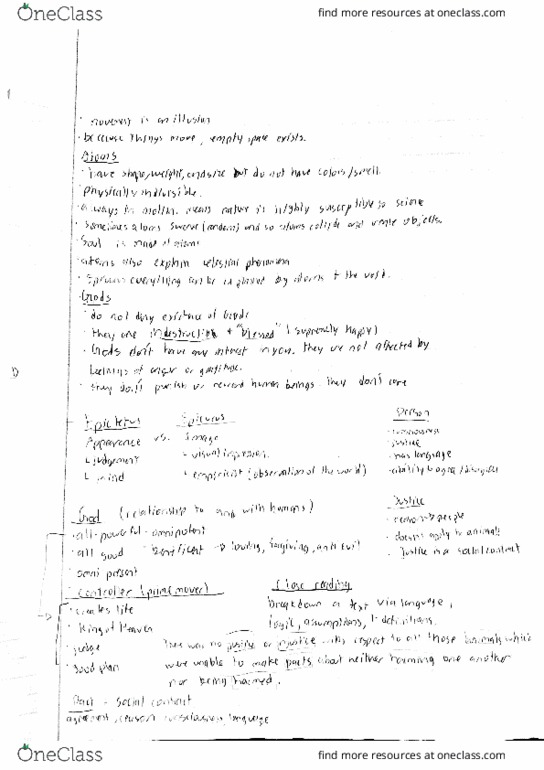 OneClass
find more resources at oneclass.com
is an illusion
because things move, empty space exists.
Atoms
have shape/weight, and size but do not have colors/smell.
physically indivisible.
always in motion. means nature is highly susceptible to
sometimes atoms swerve (random) and so atoms collide and create objects.
Soul is made of atoms
atoms also explain celestial
Epicurus everything can be explained by atoms + the void.
Gods
do not deny existence of Gods
they are indestructible + "blessed" (supremely happy)
Gods don't have any interest in you. they're not affected by
feelings of anger or gratitude.
they don't punish or reward human beings they don't care
Epictetus Epicurus Person
Appearance vs. Image
judgement visual impression justice
mind empiricist (observation of the world) has language
ability to agree/disagree
God (relationship to with humans) Justice
all-powerful - omnipotent people
all good beneficent → loving, forgiving, anti evil doesn't apply to animals
omni present Justice is a social contract
Controller (prime mover) Close reading
creates life breakdown a text via language,
King of Heaven logic, assumptions, + definitions.
judge There was no justice or injustice with respect to all those animals which
good plan were unable to make pacts about neither harming one another
nor being harmed.
Pact = social
agreement, reason language
OneClass
find more resources at oneclass.com